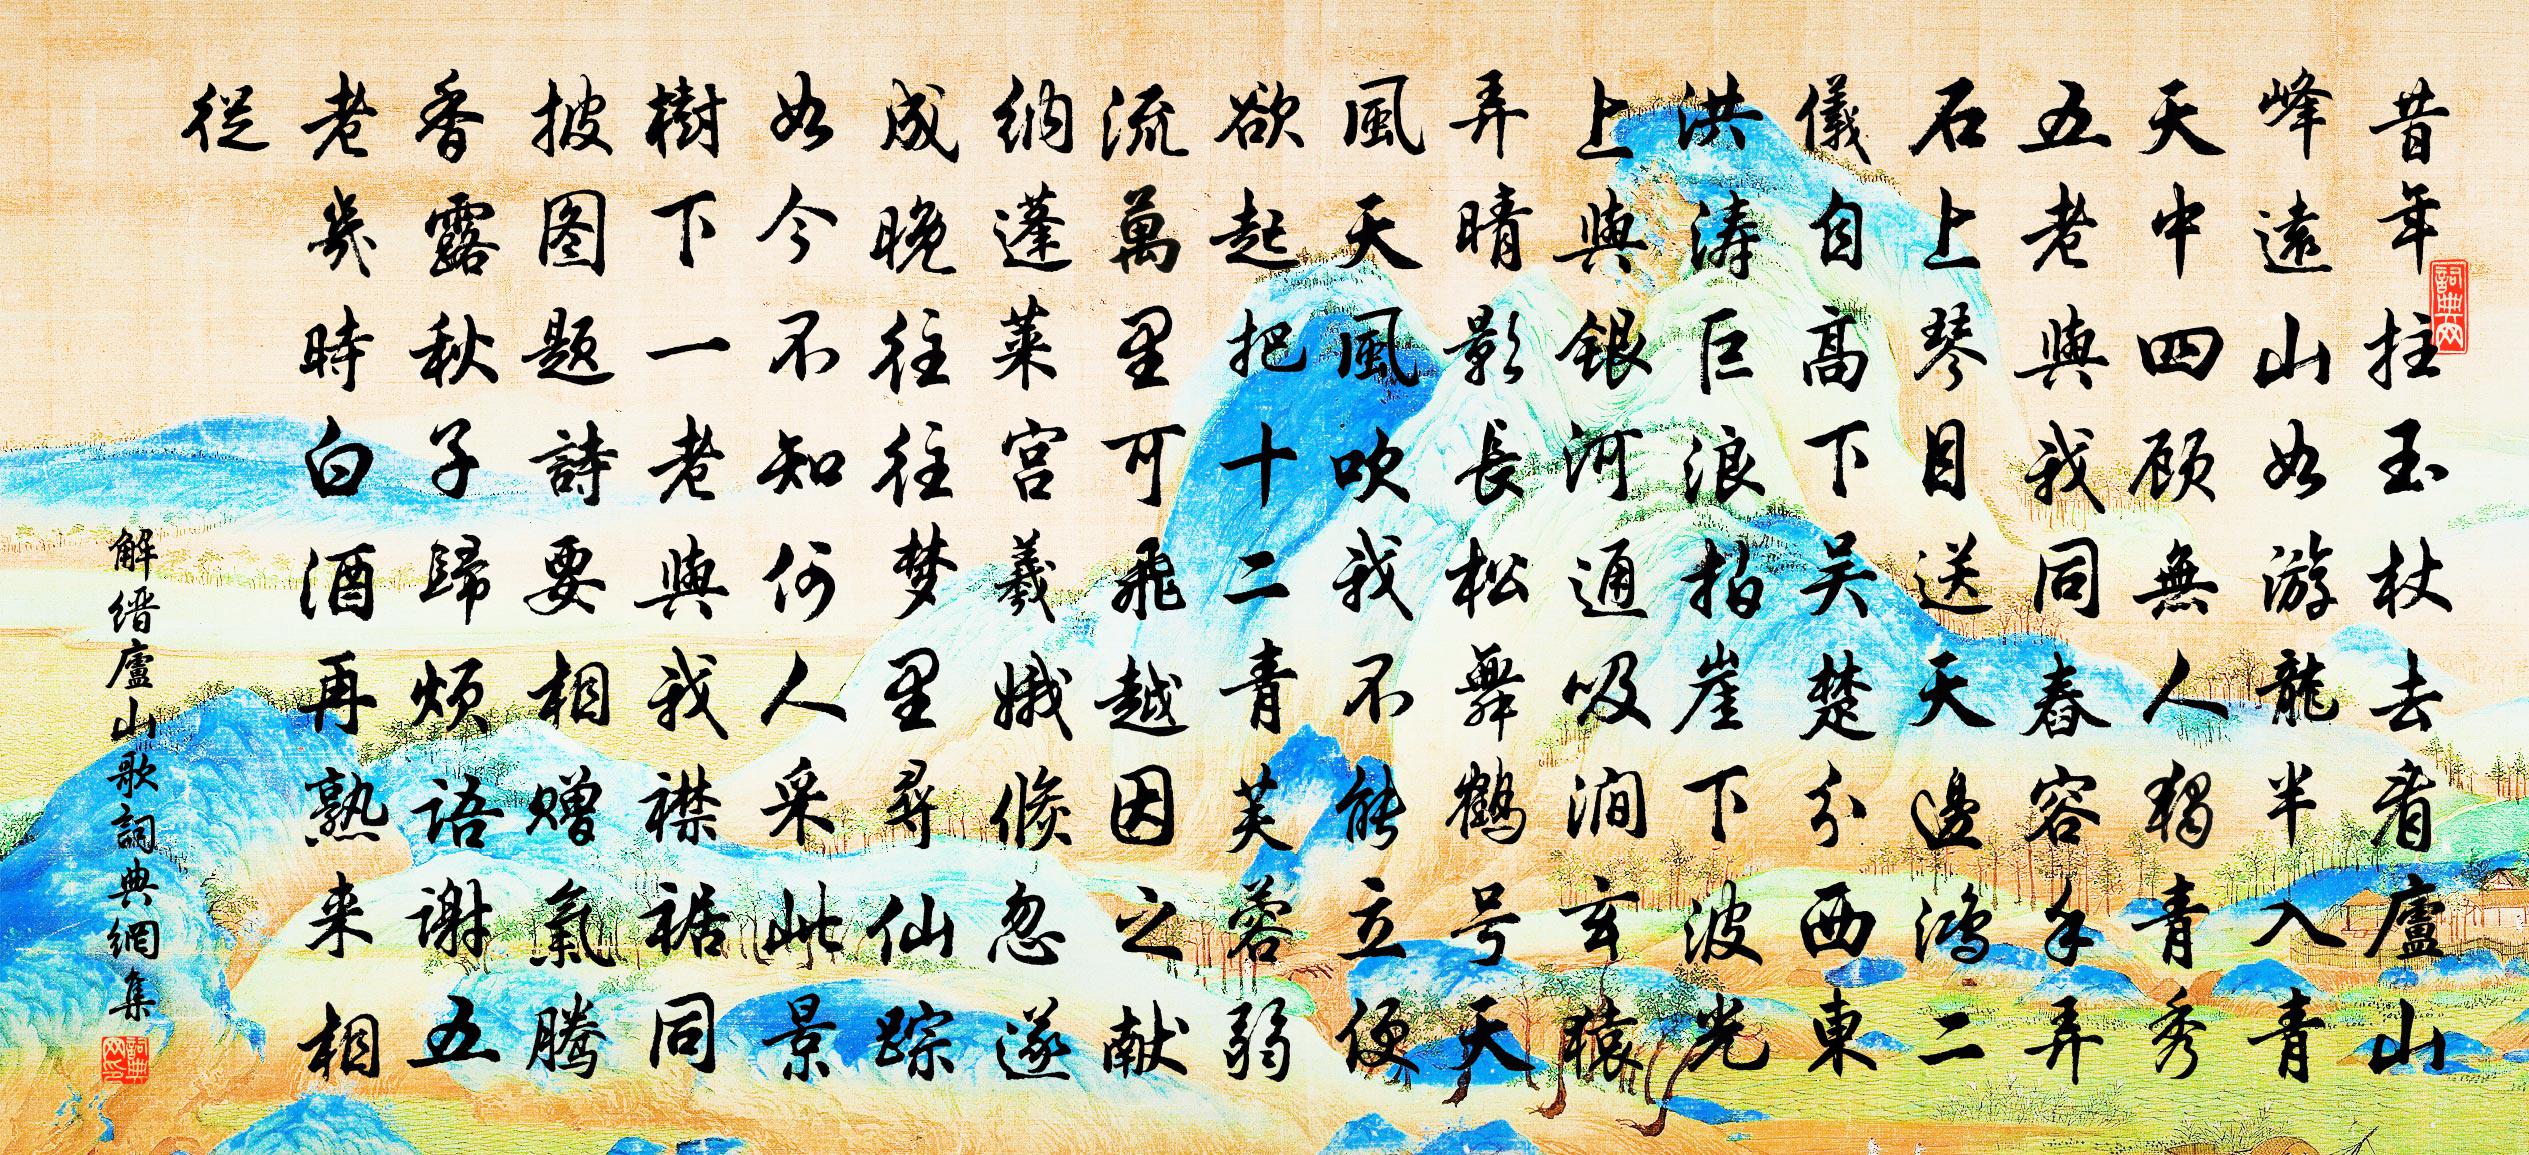 昔年拄玉杖去看廬山
峰遠山如游龍半入青
天中四顾無人獨青秀
五老與我同舂容手弄
石上琴目送天邊鴻二
儀自高下吴楚分西東
洪涛巨浪拍崖下波光
上與銀河通吸涧玄猿
弄晴影長松舞鶴号天
風天風吹我不能立便
欲起把十二青芙蓉弱
流萬里可飛越因之献
納蓬莱宫羲娥倏忽遂
成晚往往梦里尋仙踪
如今不知何人采此景
樹下一老與我襟裾同
披图题詩要相赠氣腾
香露秋子歸烦語谢五
老幾時白酒再熟来相
從
解缙廬山歌詞典網集
詞典网
詞典网印